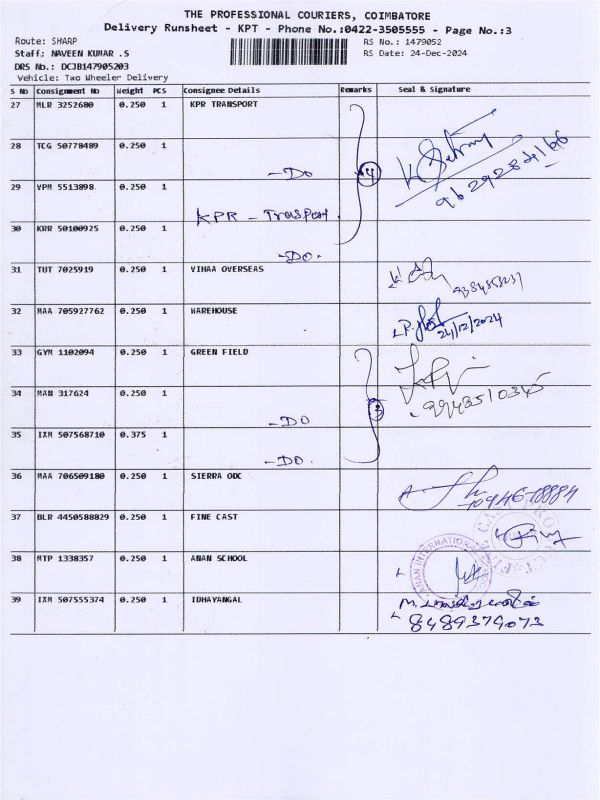 THE PROFESSIONAL COURIERS, COIMBATORE
Delivery Runsheet - KPT - Phone No.:0422-3505555 - Page No.:3
Route: SHARP RS No.: 1479052
Staff: NAVEEN KUMAR .S RS Date: 24-Dec-2024
DRS No.: DCJB147905203
Vehicle: Two Wheeler Delivery
S No Consignment No Weight PCS Consignee Details Remarks Seal & Signature
27 MLR 3252680 0.250 1 KPR TRANSPORT
28 TCG 50778489 0.250 1
-Do 4 9629284166
29 VPM 5513898 0.250 1
KPR - Transport
30 KRR 50100925 0.250 1
-Do.
31 TUT 7025919 0.250 1 VIHAA OVERSEAS
32 MAA 705927762 0.250 1 WAREHOUSE
24/12/2024
33 GYM 1102094 0.250 1 GREEN FIELD
34 MAN 317624 0.250 1
-Do 3 9943510345
35 IXM 507568710 0.375 1
-Do.
36 MAA 706509180 0.250 1 SIERRA ODC
37 BLR 4450588829 0.250 1 FINE CAST
38 MTP 1338357 0.250 1 ANAN SCHOOL
39 IXM 507555374 0.250 1 IDHAYANGAL
8489379073